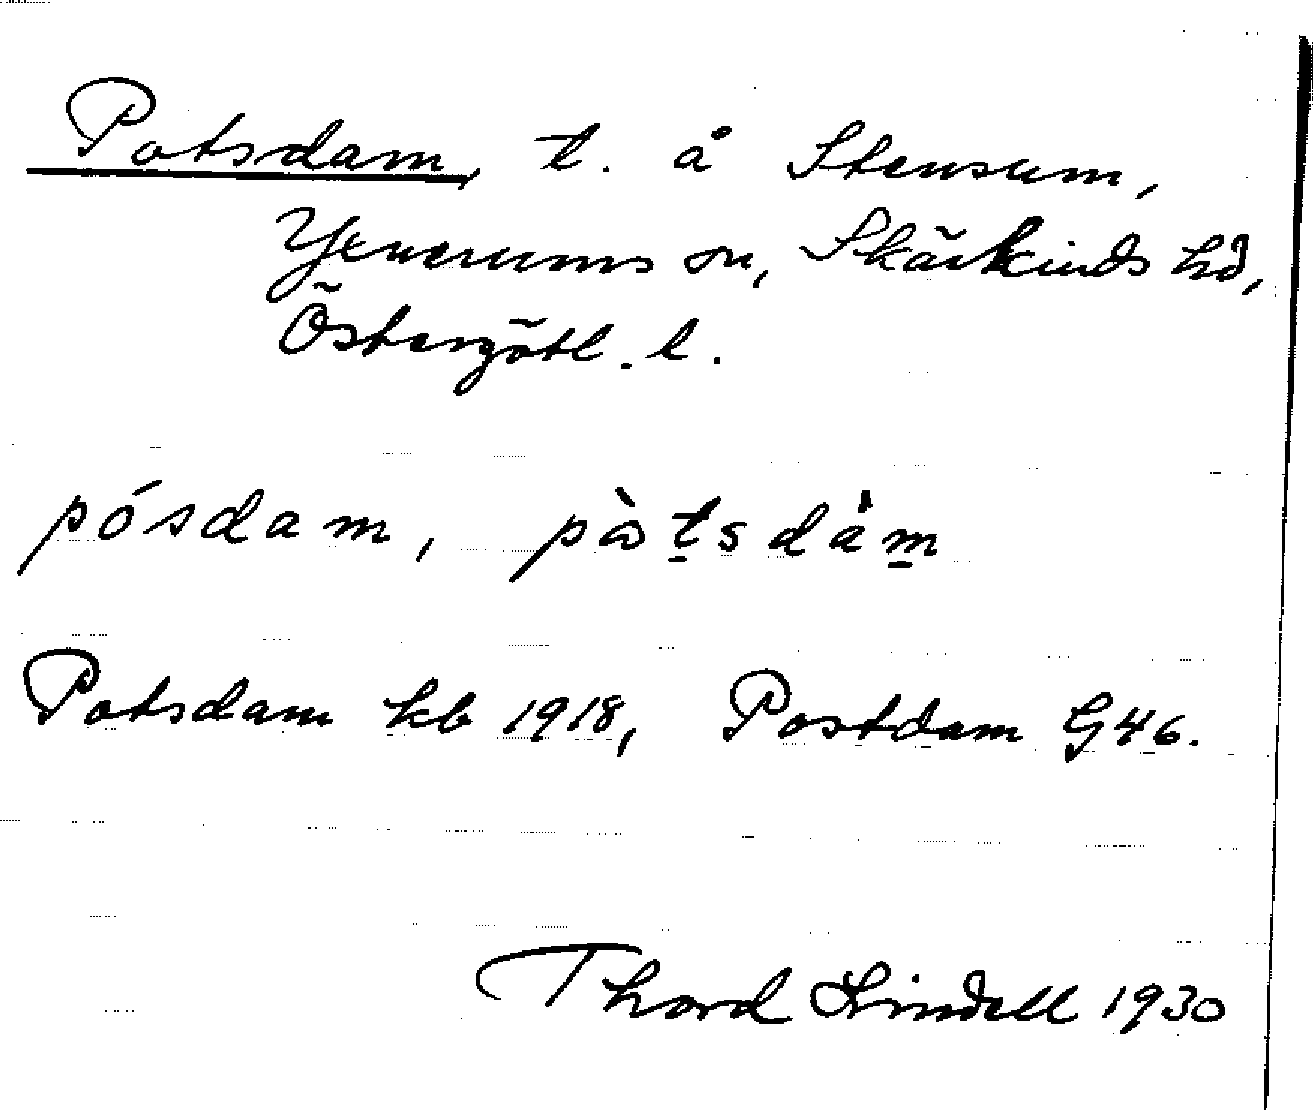 Potsdam, t. å Stensum,
Yxnerums sn, Skärkinds hd,
Östergötl. l.
pósdam, pàtsdám
Potsdam kb 1918, Postdam G46.
Thord Lindell 1930